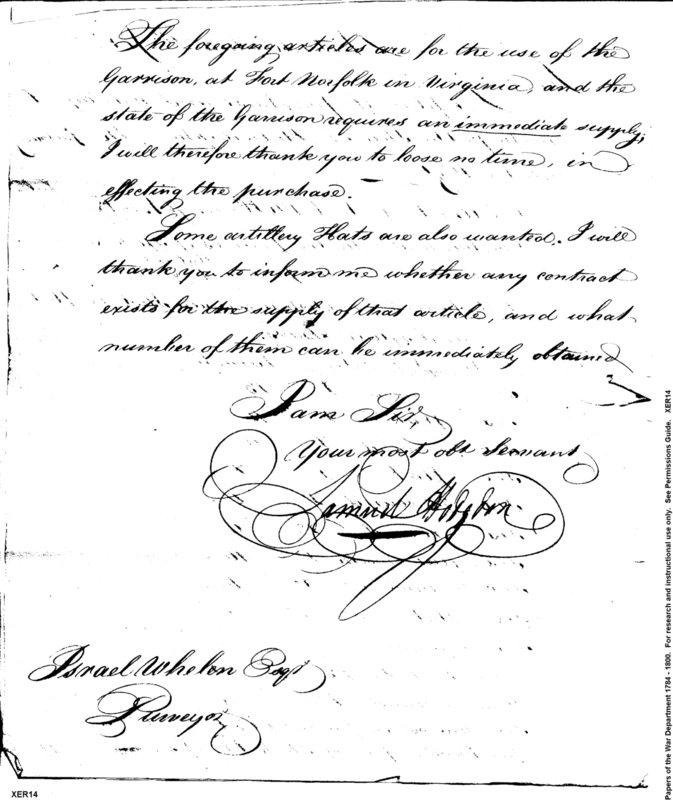 The foregoing articles are for the use of the
Garrison, at Fort Norfolk in Virginia, and the
state of the Garrison requires an immediate supply,
I will therefore thank you to loose no time, in
effecting the purchase.
Some artillery Hats are also wanted. I will
thank you to inform me whether any contract
exists for the supply of that article, and what
number of them can be immediately obtained
I am Sir
Your most obt Servant
Samuel Hodgdon
Israel Whelen Esqr
Purveyor
XER14
Papers of the War Department 1784 - 1800. For research and instructional use only. See Permissions Guide. XER14